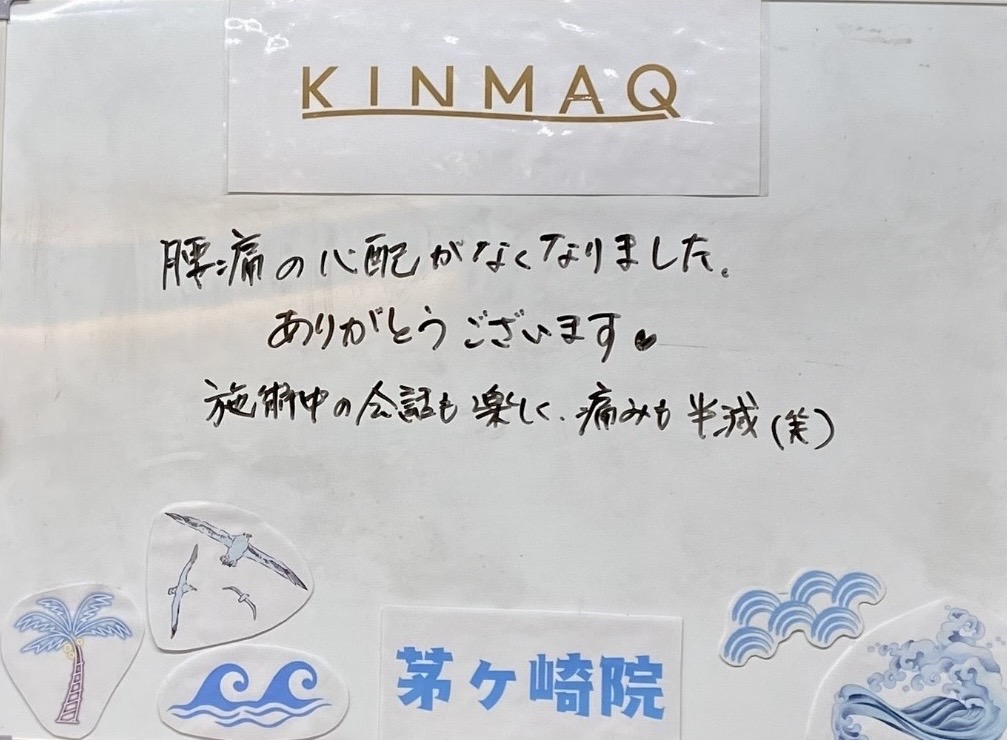 KINMAQ
腰痛の心配がなくなりました。
ありがとうございます♥
施術中の会話も楽しく、痛みも半減(笑)
茅ヶ崎院